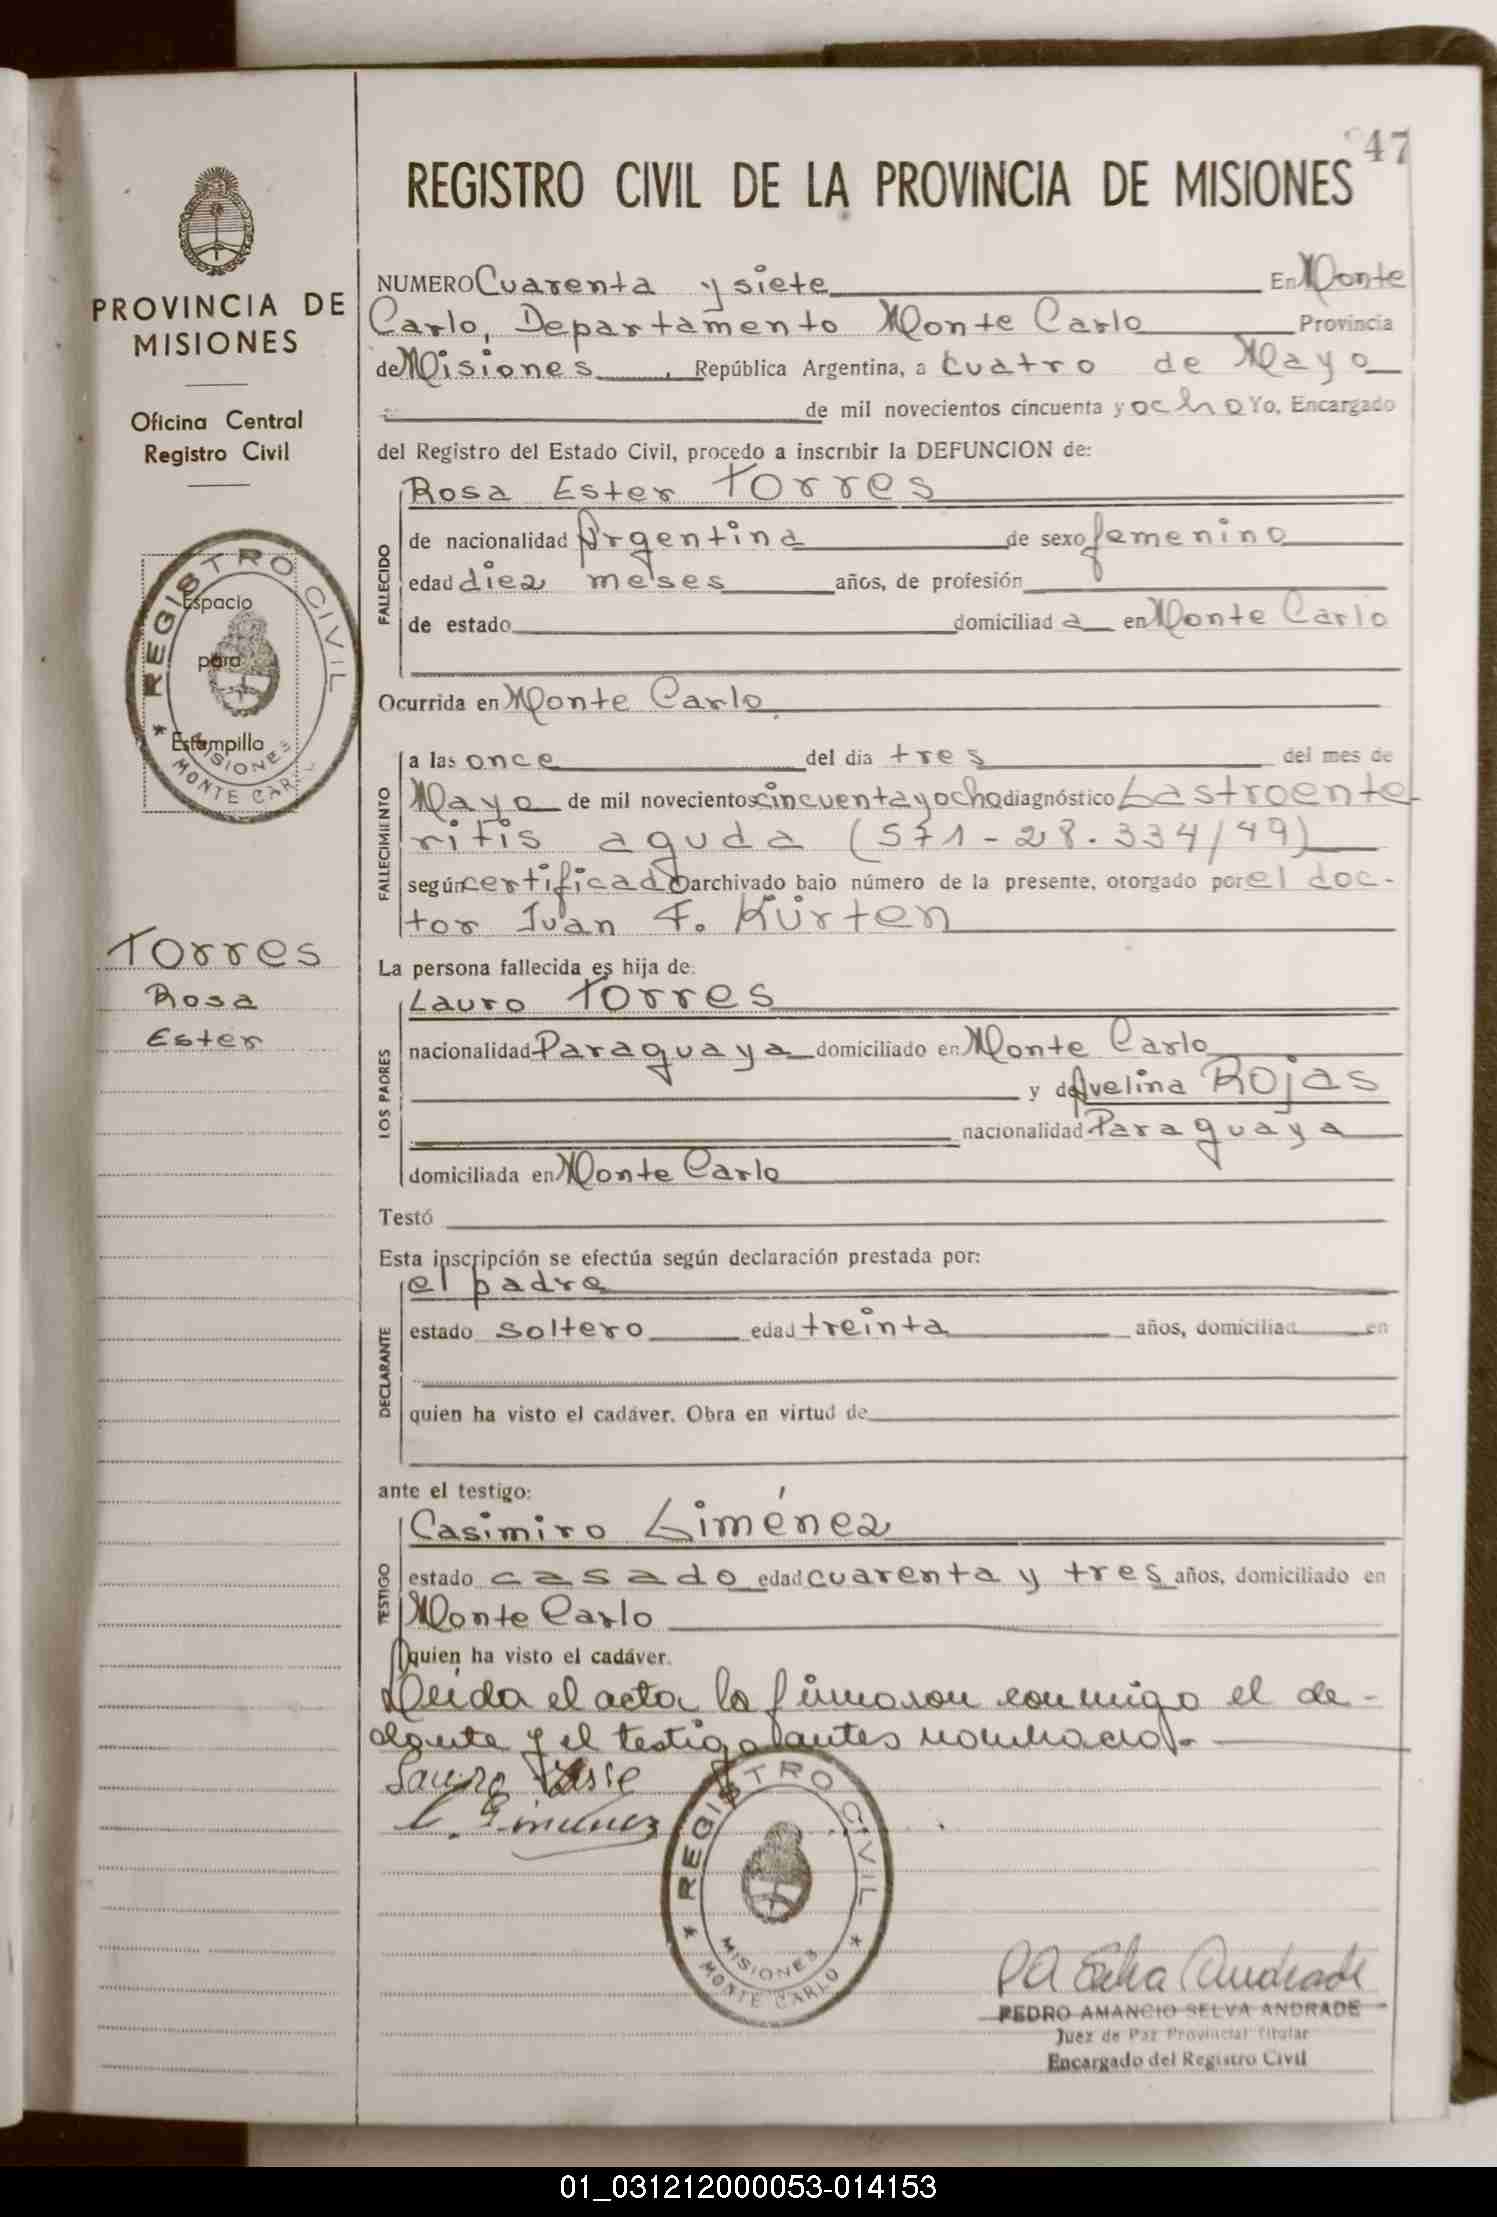 47
REGISTRO CIVIL DE LA PROVINCIA DE MISIONES
PROVINCIA DE
MISIONES
Oficina Central
Registro Civil
REGISTRO CIVIL
Espacio
para
Estampilla
MISIONES
* MONTE CARL
Torres
Rosa
Ester
NUMERO Cuarenta y siete En Monte
Carlo, Departamento Monte Carlo Provincia
de Misiones, República Argentina, a cuatro de Mayo
de mil novecientos cincuenta y ocho Yo, Encargado
del Registro del Estado Civil, procedo a inscribir la DEFUNCION de:
FALLECIDO
Rosa Ester Torres
de nacionalidad Argentina de sexo femenino
edad diez meses años, de profesión
de estado domiciliad a en Monte Carlo
Ocurrida en Monte Carlo
FALLECIMIENTO
a las once del día tres del mes de
Mayo de mil novecientos cincuenta y ocho diagnóstico Gastroente
ritis aguda (571-28.334/49)
según certificado archivado bajo número de la presente, otorgado por el doc-
tor Juan F. Kürten
La persona fallecida es hija de:
LOS PADRES
Lauro Torres
nacionalidad Paraguaya domiciliado en Monte Carlo
y de Avelina Rojas
nacionalidad Paraguaya
domiciliada en Monte Carlo
Testó
Esta inscripción se efectúa según declaración prestada por:
DECLARANTE
el padre
estado soltero edad treinta años, domiciliad en
quien ha visto el cadáver. Obra en virtud de
ante el testigo:
TESTIGO
Casimiro Giménez
estado casado edad cuarenta y tres años, domiciliado en
Monte Carlo
quien ha visto el cadáver.
Leida el acta la firmaron conmigo el de-
clarante y el testigo antes nombrado.-
Lauro
C. Gimenez
REGISTRO CIVIL
MISIONES
* MONTE CARLO *
PA Selva Andrade
PEDRO AMANCIO SELVA ANDRADE
Juez de Paz Provincial Titular
Encargado del Registro Civil
01_031212000053-014153